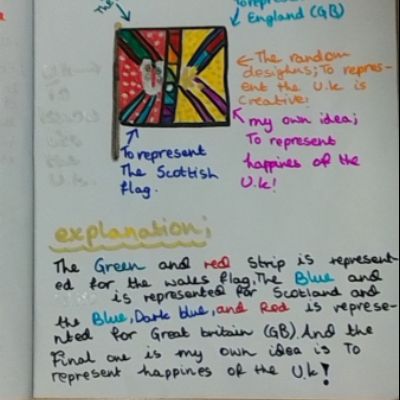 The
To represent
England (GB)
The random
designs; To repres-
ent the U.K is
creative!
my own idea;
To represent
happines of the
U.k!
To represent
The Scottish
flag.
explanation;
The Green and red strip is represent-
ed for the wales flag, The Blue and
is represented for Scotland and
the Blue, Dark blue, and Red is represe-
nted for Great britain (GB). And the
Final one is my own idea is To
represent happines of the U.k!